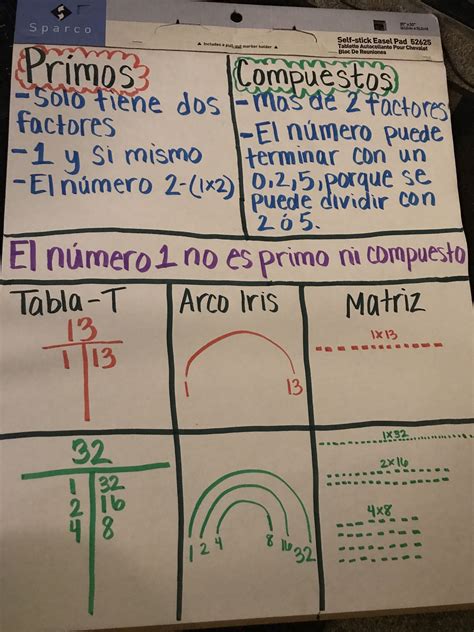 Sparco
Includes a pull-out marker holder
Self-stick Easel Pad 52625
Tablette Autocollante Pour Chevalet
Bloc De Reuniones
Primos
-Solo tiene dos
factores
-1 y si mismo
-El número 2-(1x2)
Compuestos
-Mas de 2 factores
-El número puede
terminar con un
0,2,5, porque se
puede dividir con
2 ó 5.
El número 1 no es primo ni compuesto
Tabla-T
13
1 13
Arco Iris
1 13
Matriz
1x13
32
1 32
2 16
4 8
1 2 4 8 16 32
1x32
2x16
4x8